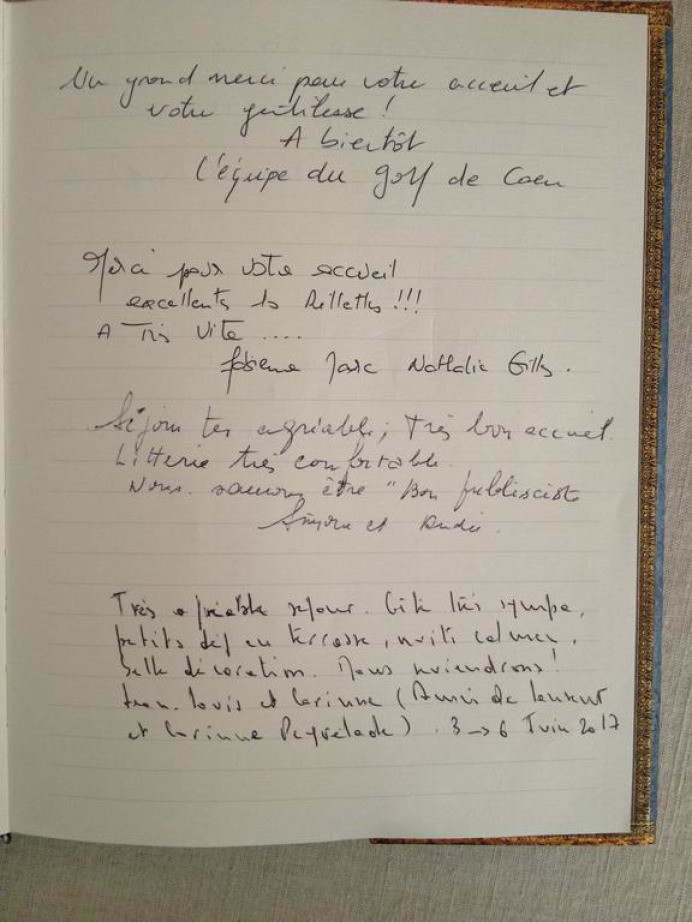 Un grand merci pour votre accueil et
votre gentillesse !
A bientôt
L'équipe du golf de Caen
Merci pour votre accueil
excellents les Rillettes !!!
A Très Vite ....
Nathalie Gilles.
Séjour très agréable ; Très bon accueil.
Litterie très confortable.
Nous saurons être "Bon publisciste
Simone et André.
Très agréable séjour. Gîte très sympa,
petits dej en terrasse, nuits calmes,
belle décoration. Nous reviendrons !
Jean-Louis et Corinne (Amis de Laurent
et Corinne Peyrelade). 3 → 6 Juin 2017